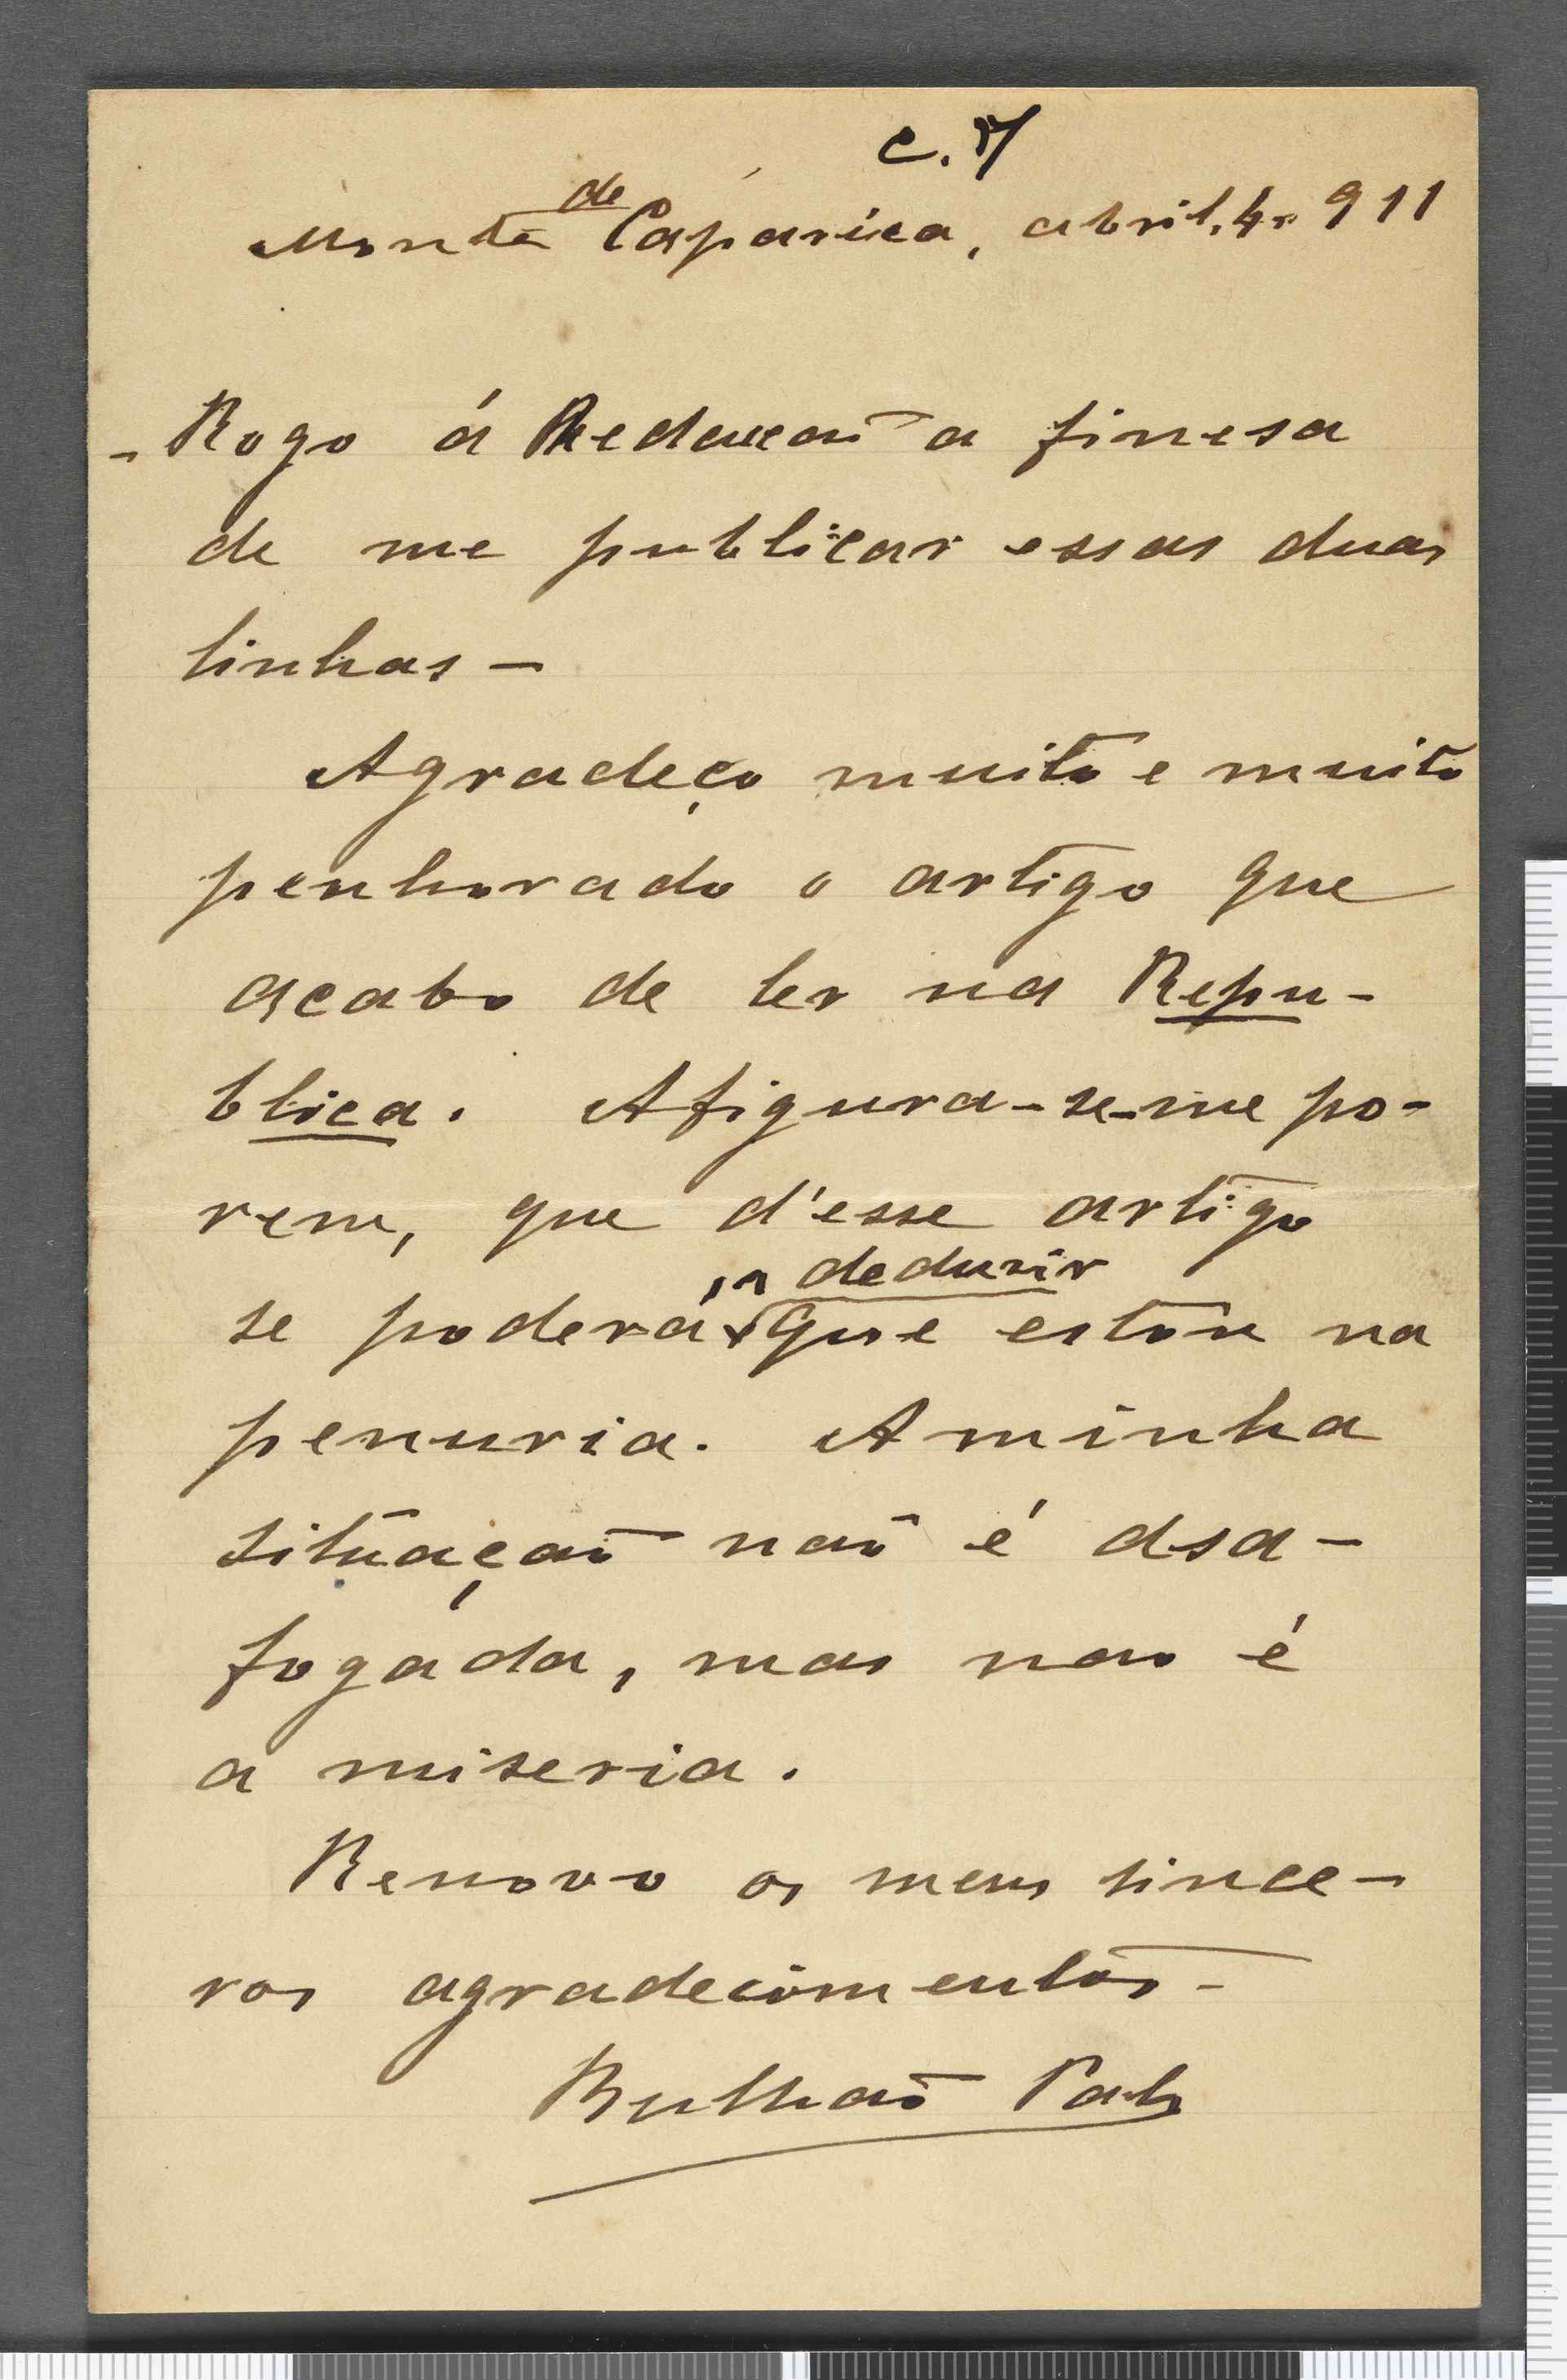 C. 7
Monte de Caparica, abril, 4. 911
- Rogo á Redacção a finesa
de me publicar essas duas
linhas -
Agradeço muito e muito
penhorado o artigo que
acabo de ler na Repu-
blica. Afigura-se-me po-
rem, que d'esse artigo
se poderá deduzir que estou na
penuria. A minha
situação não é dsa-
fogada, mas nao é
a miseria.
Renovo os meus since-
ros agradecimentos -
Bulhão Pato